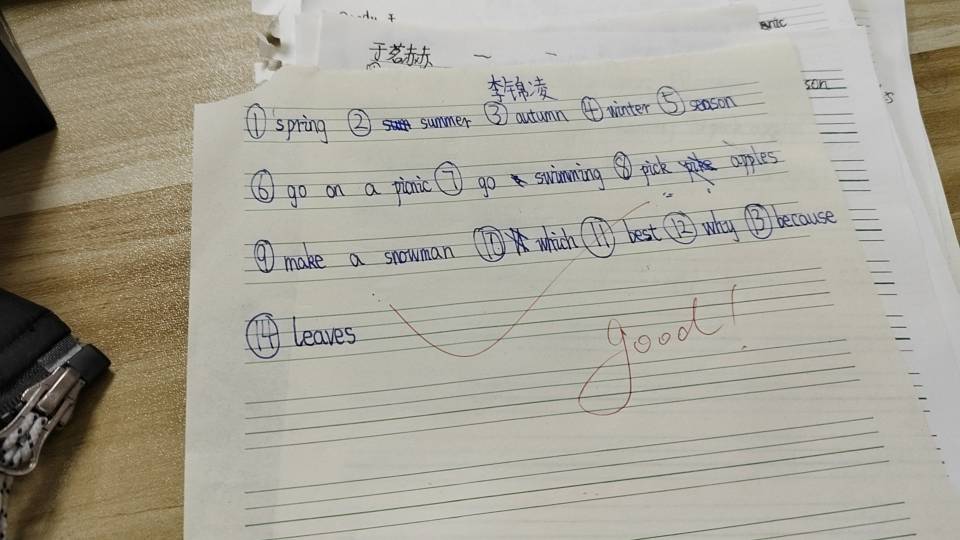 于茗赫
李锦凌
① spring ② summer ③ autumn ④ winter ⑤ season
⑥ go on a picnic ⑦ go swimming ⑧ pick apples
⑨ make a snowman ⑩ which ⑪ best ⑫ why ⑬ because
⑭ leaves
good!